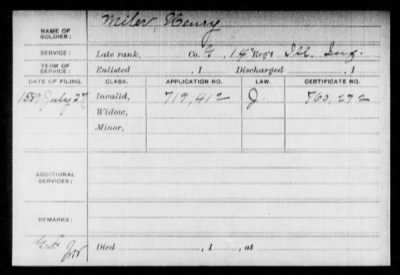 NAME OF SOLDIER: Miler Henry
SERVICE: Late rank, Co. G, 14 Reg't Ill. Inf.
TERM OF SERVICE: Enlisted , 1 Discharged , 1
DATE OF FILING. CLASS. APPLICATION NO. LAW. CERTIFICATE NO.
1889 July 27 Invalid, 719,412 J.
Widow,
Minor,
ADDITIONAL SERVICES:
REMARKS:
Died , 1 , at